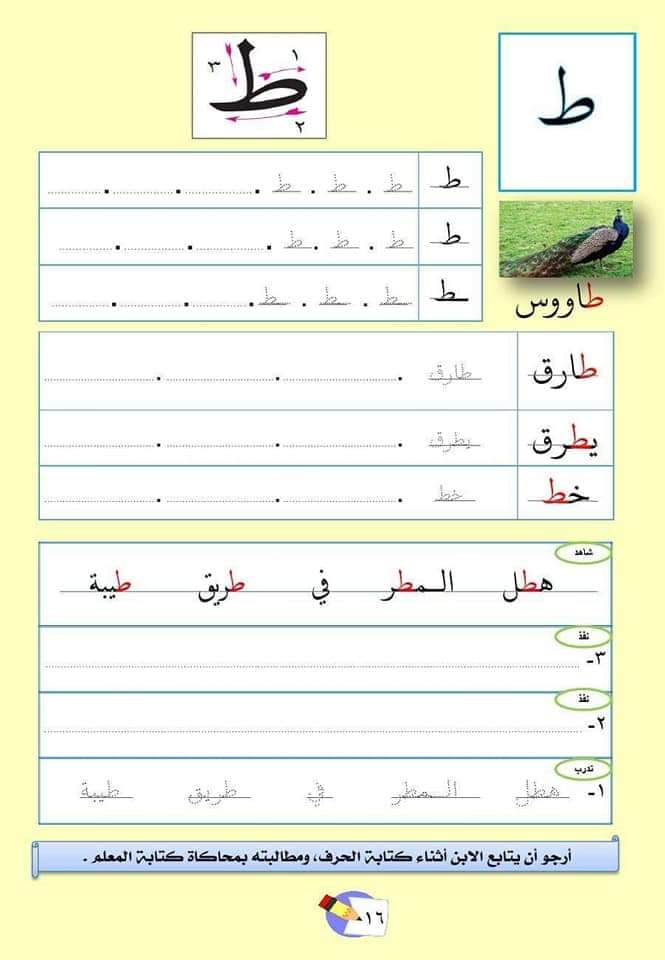 ط
١
٢
٣
ط
طاووس
ط ط . ط . ط .
ط ط . ط . ط .
ط ط . ط . ط .
طارق طارق
يطرق يطرق
خط خط
شاهد
هطل المطر في طريق طيبة
نفذ
٣-
نفذ
٢-
تدرب
١- هطل المطر في طريق طيبة
أرجو أن يتابع الابن أثناء كتابة الحرف، ومطالبته بمحاكاة كتابة المعلم .
١٦